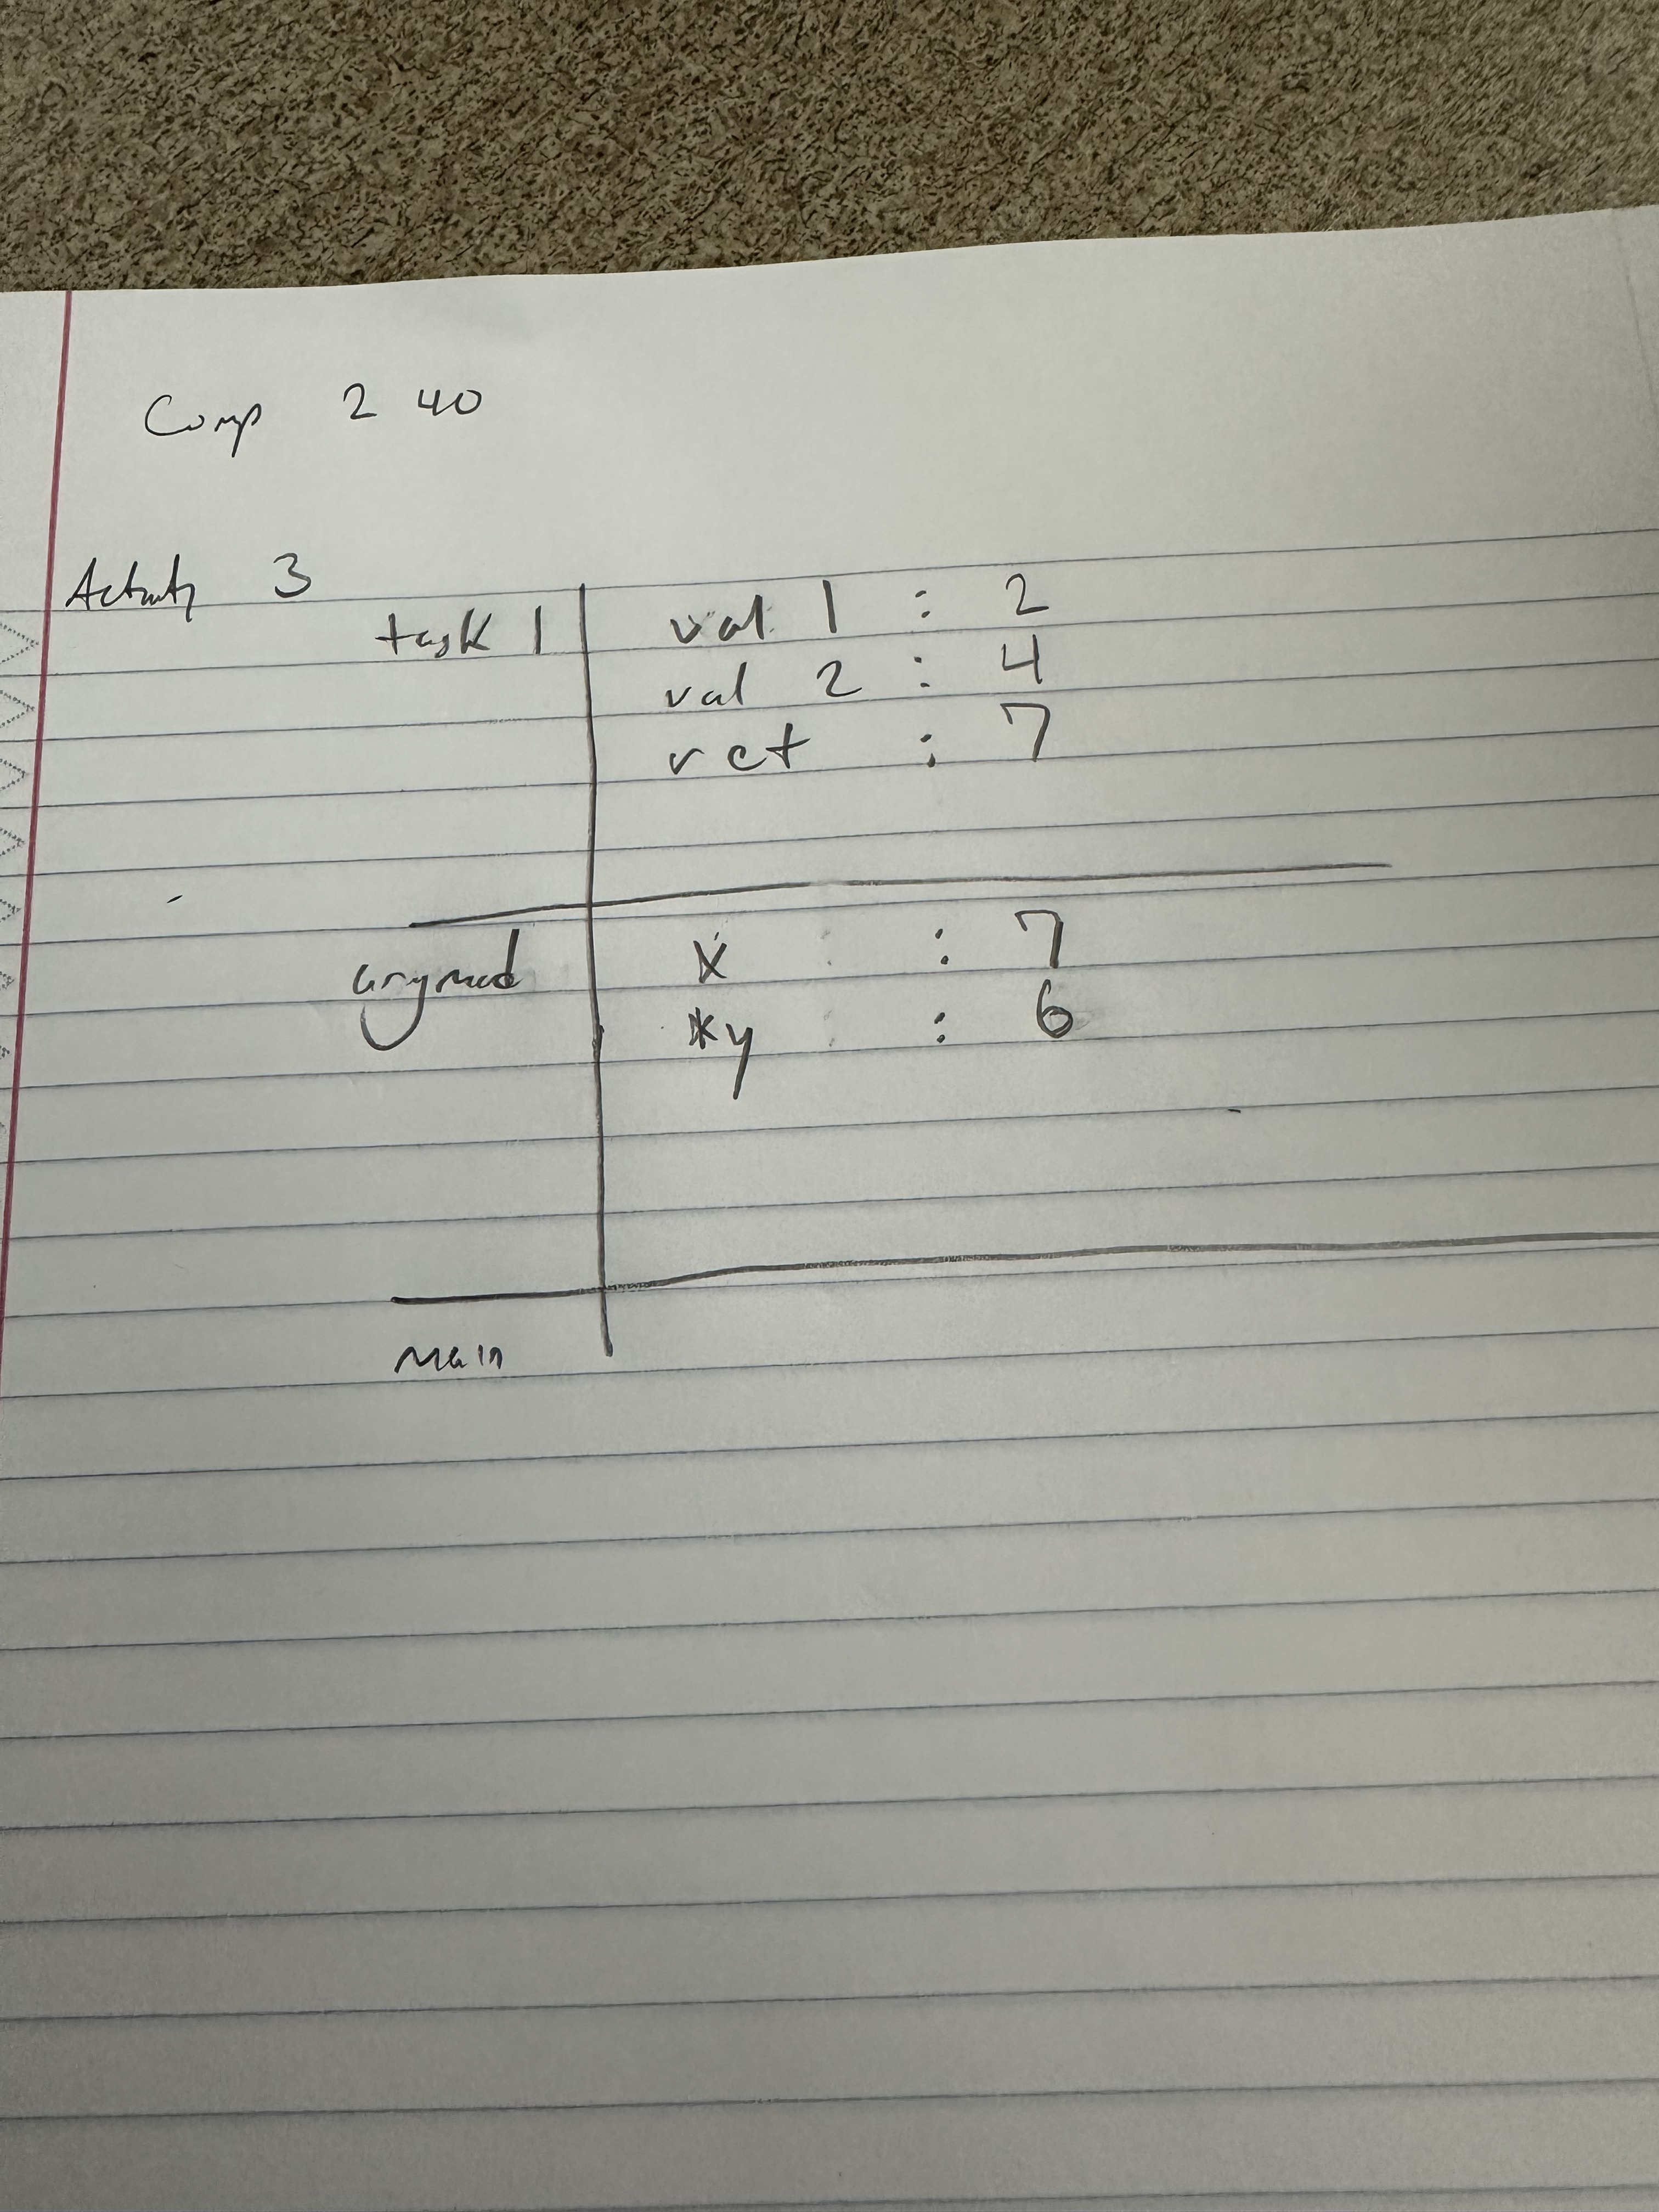 Comp 240
Activity 3
task 1 val 1 : 2
val 2 : 4
ret : 7
argmod x : 7
*y : 6
main